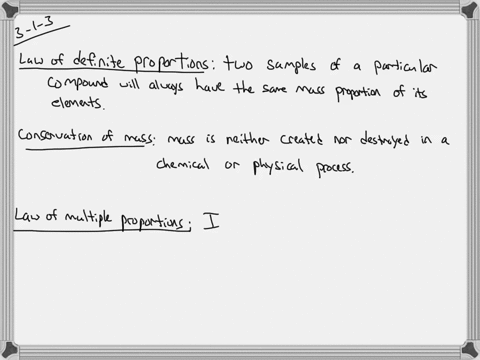 3-1-3
Law of definite proportions: two samples of a particular
compound will always have the same mass proportion of its
elements.
Conservation of mass: mass is neither created nor destroyed in a
chemical or physical process.
Law of multiple proportions: I